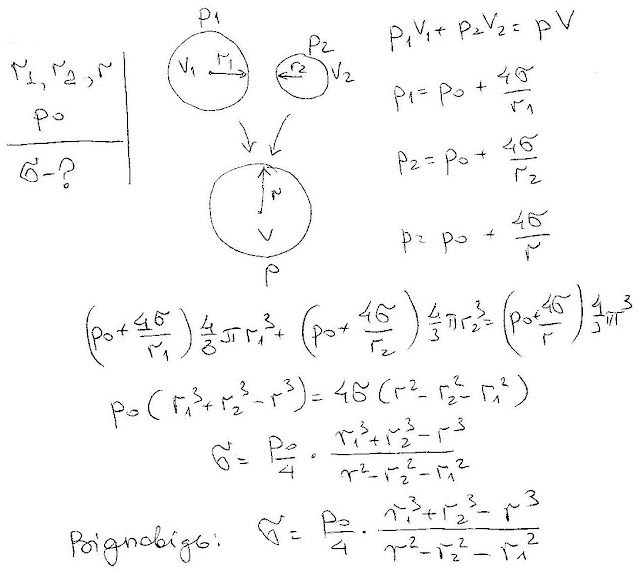 r₁, r₂, r
p₀
σ-?
p₁
V₁
r₁
p₂
r₂
V₂
r
V
p
p₁V₁ + p₂V₂ = pV
p₁ = p₀ + 4σ/r₁
p₂ = p₀ + 4σ/r₂
p = p₀ + 4σ/r
(p₀ + 4σ/r₁) 4/3 πr₁³ + (p₀ + 4σ/r₂) 4/3 πr₂³ = (p₀ + 4σ/r) 4/3 πr³
p₀(r₁³ + r₂³ - r³) = 4σ(r² - r₂² - r₁²)
σ = p₀/4 · (r₁³ + r₂³ - r³)/(r² - r₂² - r₁²)
Відповідь: σ = p₀/4 · (r₁³ + r₂³ - r³)/(r² - r₂² - r₁²)